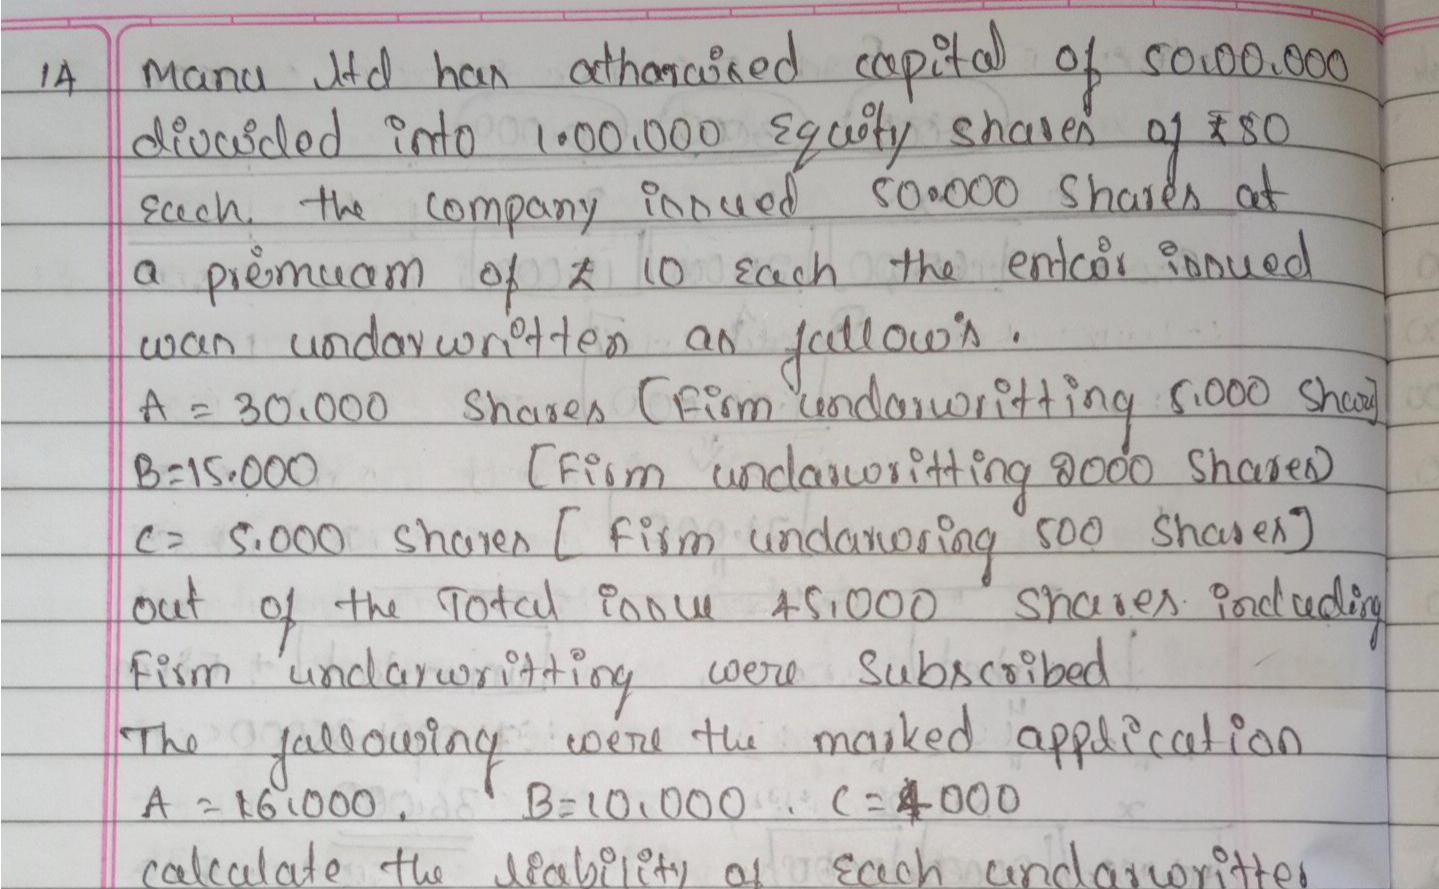 14 Manu Ltd has othoraised capital of 50,00,000
divaided into 1.00.000 Equity shares of ₹50
Each. the company issued 50.000 Shares at
a premuam of ₹ 10 Each the entair issued
was undarwritten as fallows.
A = 30.000 Shares [Firm undarwritting 5.000 Share]
B=15.000 [Firm undarwritting 2000 Shares]
C= 5.000 shares [Firm undarwring 500 Shares]
out of the Total issue 45,000 shares including
Firm undarwritting were Subscribed
The fallowing were the marked application
A = 16,000. B=10,000. C=4000
calculate the liability of Each undarwritter